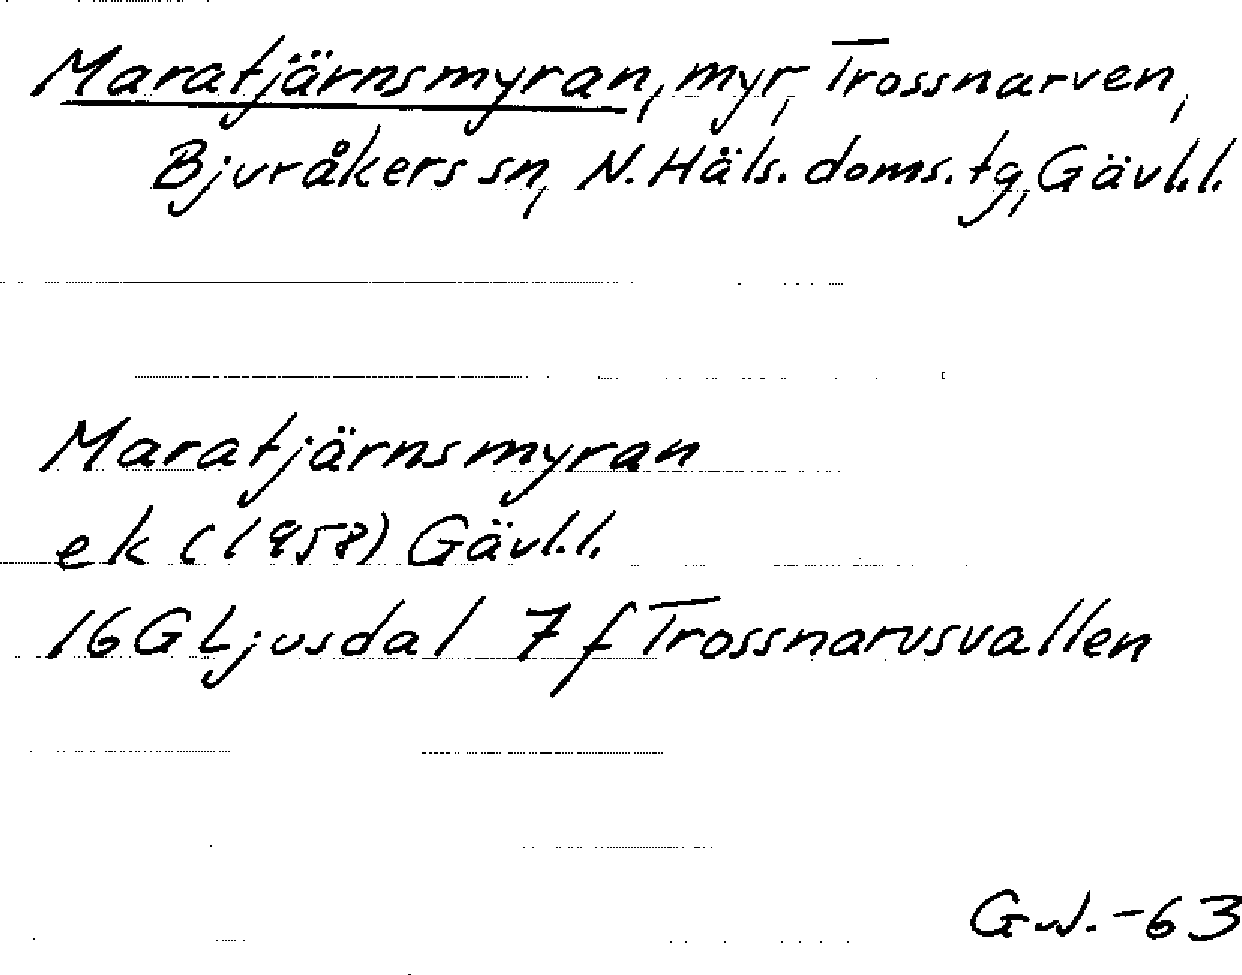 Maratjärnsmyran, myr, Trossnarven,
Bjuråkers sn, N. Häls. doms. tg, Gävl.l.
Maratjärnsmyran
ek (1958) Gävl.l.
16G Ljusdal 7 f Trossnarvsvallen
-63